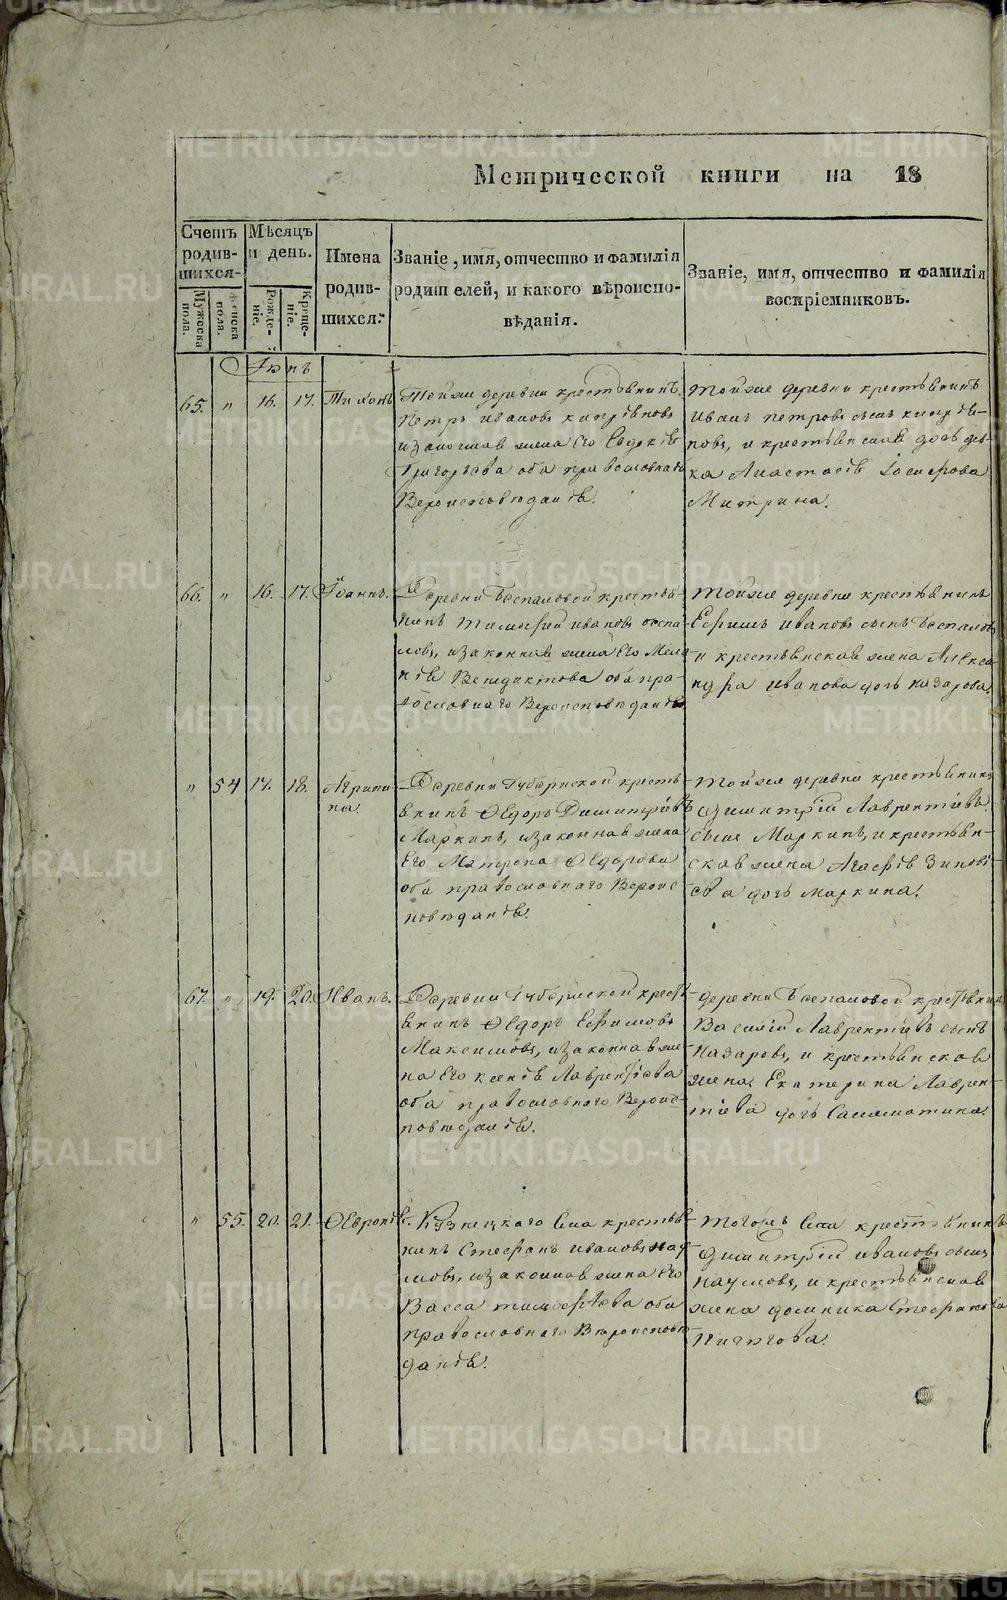 Метрической книги на 18
Счетъ родив-шихся
Мѣсяцъ и день.
Имена родив-шихся.
Званіе, имя, отчество и фамилія родителей, и какого вѣроиспо-вѣданія.
Званіе, имя, отчество и фамилія воспріемниковъ.
Мужеска пола.
Женска пола.
Рожде-ніе.
Креще-ніе.
65. " 16. 17. Тихонъ
Тойже деревни крестьянинъ
Петръ Ивановъ
изаконная жена Его Евдокія
Григорьева оба православнаго
Вероисповюданія.
Тойже деревни крестьянинъ
Иванъ Петровъ сынъ
и крестьянская дочь дев-
ка Анастасія Іосифова
Митрина.
66. " 16. 17. Іоаннъ.
Деревни Беспаловой крестья-
нинъ Тимофей Ивановъ беспа-
ловъ, изаконная жена Его Мела-
нія Венедиктова оба пра-
вославнаго Вероисповюданія
Тойже деревни крестьянинъ
Ефимъ Ивановъ сынъ Беспаловъ
и крестьянская жена Алекса-
ндра Иванова дочь Назарова.
" 54 17. 18. Агрипи-
на.
Деревни Губернской крестья-
янинъ Ѳедоръ Димитріевъ
Маркинъ, изаконная жена
Его Матрона Ѳедорова
оба православнаго Вероис-
повюданія.
Тойже деревни крестьянинъ
Димитрій Лаврентіевъ
сынъ Маркинъ, и крестьян-
ская жена Агафія Зиновi-
ева дочь Маркина.
67. " 19. 20. Иванъ.
Деревни Губернской крест-
янинъ Ѳедоръ Ефимовъ
Максимовъ, изаконная же-
на Его Ксенія Лаврентіева
оба православнаго Вероис-
повюданія.
деревни Беспаловой крестьянинъ
Василій Лаврентіевъ сынъ
Назаровъ, и крестьянская
жена Екатерина Лаврен-
тіева дочь
" 55. 20. 21. Ѳевронія.
Кузнецкаго Села крестья-
нинъ Стефанъ Ивановъ Нау-
мовъ, изаконная жена Его
Васса Тимофѣева оба
православнаго Вероисповю-
данія.
Тогожъ Села крестьянинъ
Димитрій Ивановъ сынъ
Наумовъ, и крестьянская
жена Домника Стефанова
METRIKI.GASO-URAL.RU